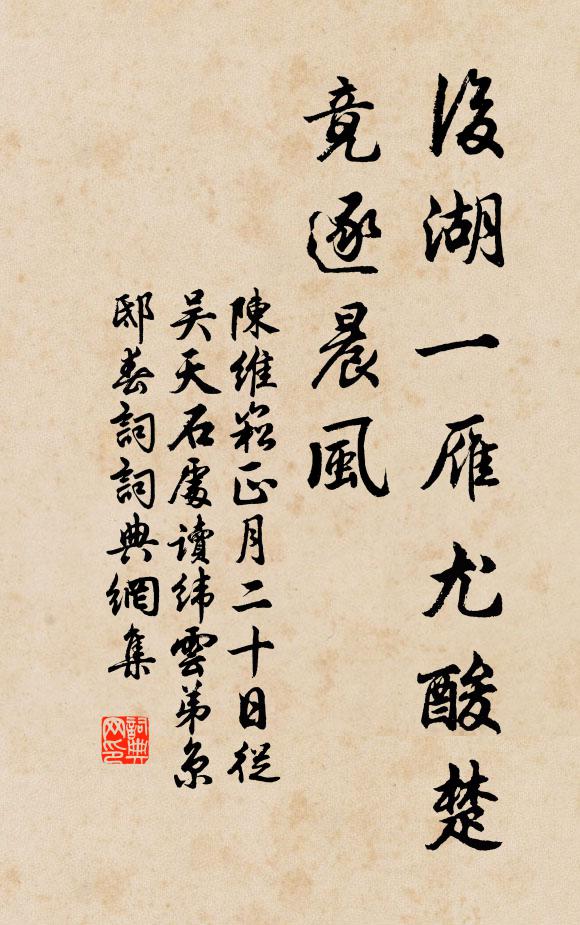 後湖一雁尤酸楚
竟逐晨風
陳維崧正月二十日從
吴天石處讀緯雲弟京
邸春詞詞典網集
詞典
网印